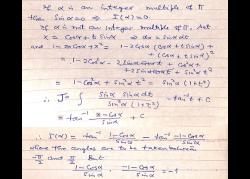 If α is an integer multiple of π
then sin α = 0 ⇒ I(α) = 0.
If α is not an integer multiple of π, let
x = Cosα + t Sinα ⇒ dx = sinα dt
and 1 - 2x Cosα + x² = 1 - 2Cosα (Cosα + t Sinα) +
(Cosα + t Sinα)²
= 1 - 2Cos²α - 2 Sinα Cosα t + Cos²α +
2 Sinα Cosα t + Sin²α t²
= 1 - Cos²α + Sin²α t² = Sin²α (1+t²)
∴ J = ∫ Sinα Sinα dt / Sin²α (1+t²) = tan⁻¹ t + C
= tan⁻¹ (x - Cosα / Sinα) + C
∴ I(α) = tan⁻¹ (1 - Cosα / Sinα) - tan⁻¹ (-1 - Cosα / Sinα)
where the angles are to be taken between
-π/2 and π/2. But
(1 - Cosα / Sinα) (-1 - Cosα / Sinα) = -1